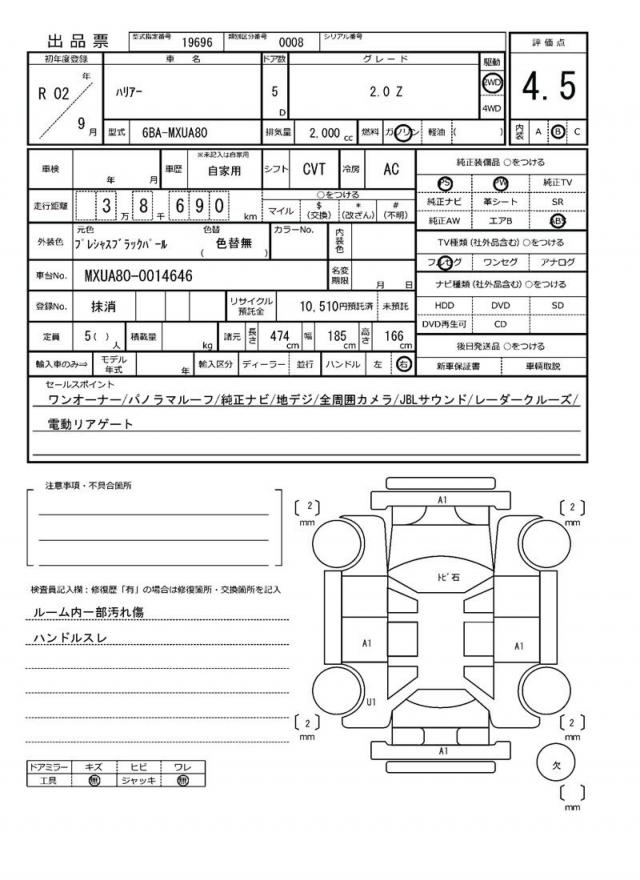 出品票 型式指定番号 19696 類別区分番号 0008 シリアル番号
初年度登録 車名 ドア数 グレード 駆動 評価点
R 02 年 9 月 ﾊﾘｱｰ 5 D 2.0 Z 2WD 4WD 4.5
型式 6BA-MXUA80 排気量 2,000 cc 燃料 ガソリン 軽油 ( ) 内装 A B C
車検 年 月 車歴 ※未記入は自家用 自家用 シフト CVT 冷房 AC
走行距離 3 万 8 千 6 9 0 km ○をつける
マイル $ (交換) * (改ざん) # (不明)
外装色 元色 ﾌﾟﾚｼｬｽﾌﾞﾗｯｸﾊﾟｰﾙ 色替 ( 色替無 ) カラーNo. 内装色
車台No. MXUA80-0014646 名変期限 月 日
登録No. 抹消 リサイクル預託金 10,510円預託済 未預託
定員 5( ) 人 積載量 kg 諸元 長さ 474 cm 幅 185 cm 高さ 166 cm
輸入車のみ⇒ モデル年式 年 輸入区分 ディーラー 並行 ハンドル 左 右
純正装備品 ○をつける
PS PW 純正TV
純正ナビ 革シート SR
純正AW エアB ABS
TV種類(社外品含む) ○をつける
フルセグ ワンセグ アナログ
ナビ種類(社外品含む) ○をつける
HDD DVD SD
DVD再生可 CD
後日発送品 ○をつける
新車保証書 車輌取説
セールスポイント
ワンオーナー/パノラマルーフ/純正ナビ/地デジ/全周囲カメラ/JBLサウンド/レーダークルーズ/
電動リアゲート
注意事項・不具合箇所
検査員記入欄：修復歴「有」の場合は修復箇所・交換箇所を記入
ルーム内一部汚れ傷
ハンドルスレ
ドアミラー キズ ヒビ ワレ
工具 無 ジャッキ 無
A1
[ 2 ] mm [ 2 ] mm
ﾄﾋﾞ石
A1 A1
U1
[ 2 ] mm [ 2 ] mm
A1
欠
[ ] mm